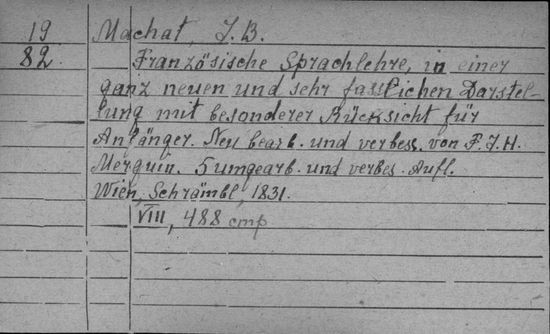 19 Machat, J. B.
82. Französische Sprachlehre, in einer
ganz neuen und sehr fasslichen Darstel-
lung mit besonderer Rücksicht für
Anfänger. Neu bearb. und verbess. von P. J. H.
Merguin. 5 umgearb. und verbes. Aufl.
Wien, Schrämbl, 1831.
VIII, 488 cmp